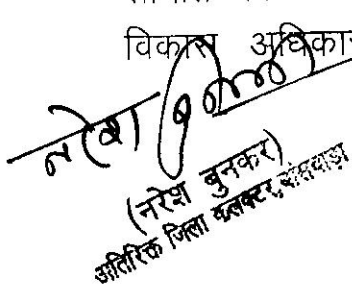 विकास अधिकार
नरेश
(नरेश बुनकर)
अतिरिक्त जिला कलक्टर, बांसवाड़ा